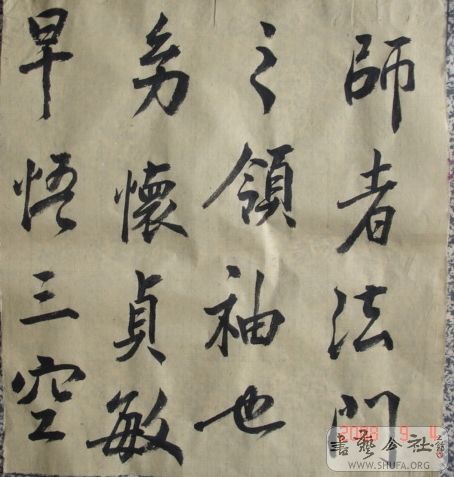 師者法門
之領袖也
幼懷貞敏
早悟三空
書藝公社
WWW.SHUFA.ORG